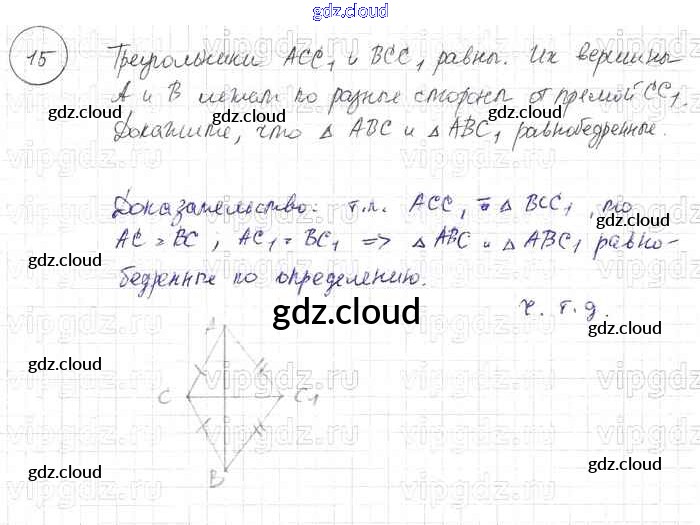 gdz.cloud
15 Треугольники ACC1 и BCC1 равны. Их вершины
A и B лежат по разные стороны от прямой CC1.
Докажите, что △ ABC и △ ABC1 равнобедренные.
Доказательство: т.к. ACC1 = △ BCC1, то
AC = BC, AC1 = BC1 => △ ABC и △ ABC1 равно-
бедренные по определению.
ч. т. д.
A
C C1
B
gdz.cloud
gdz.cloud
gdz.cloud
gdz.cloud
gdz.cloud
gdz.cloud
gdz.cloud
gdz.cloud
gdz.cloud
gdz.cloud